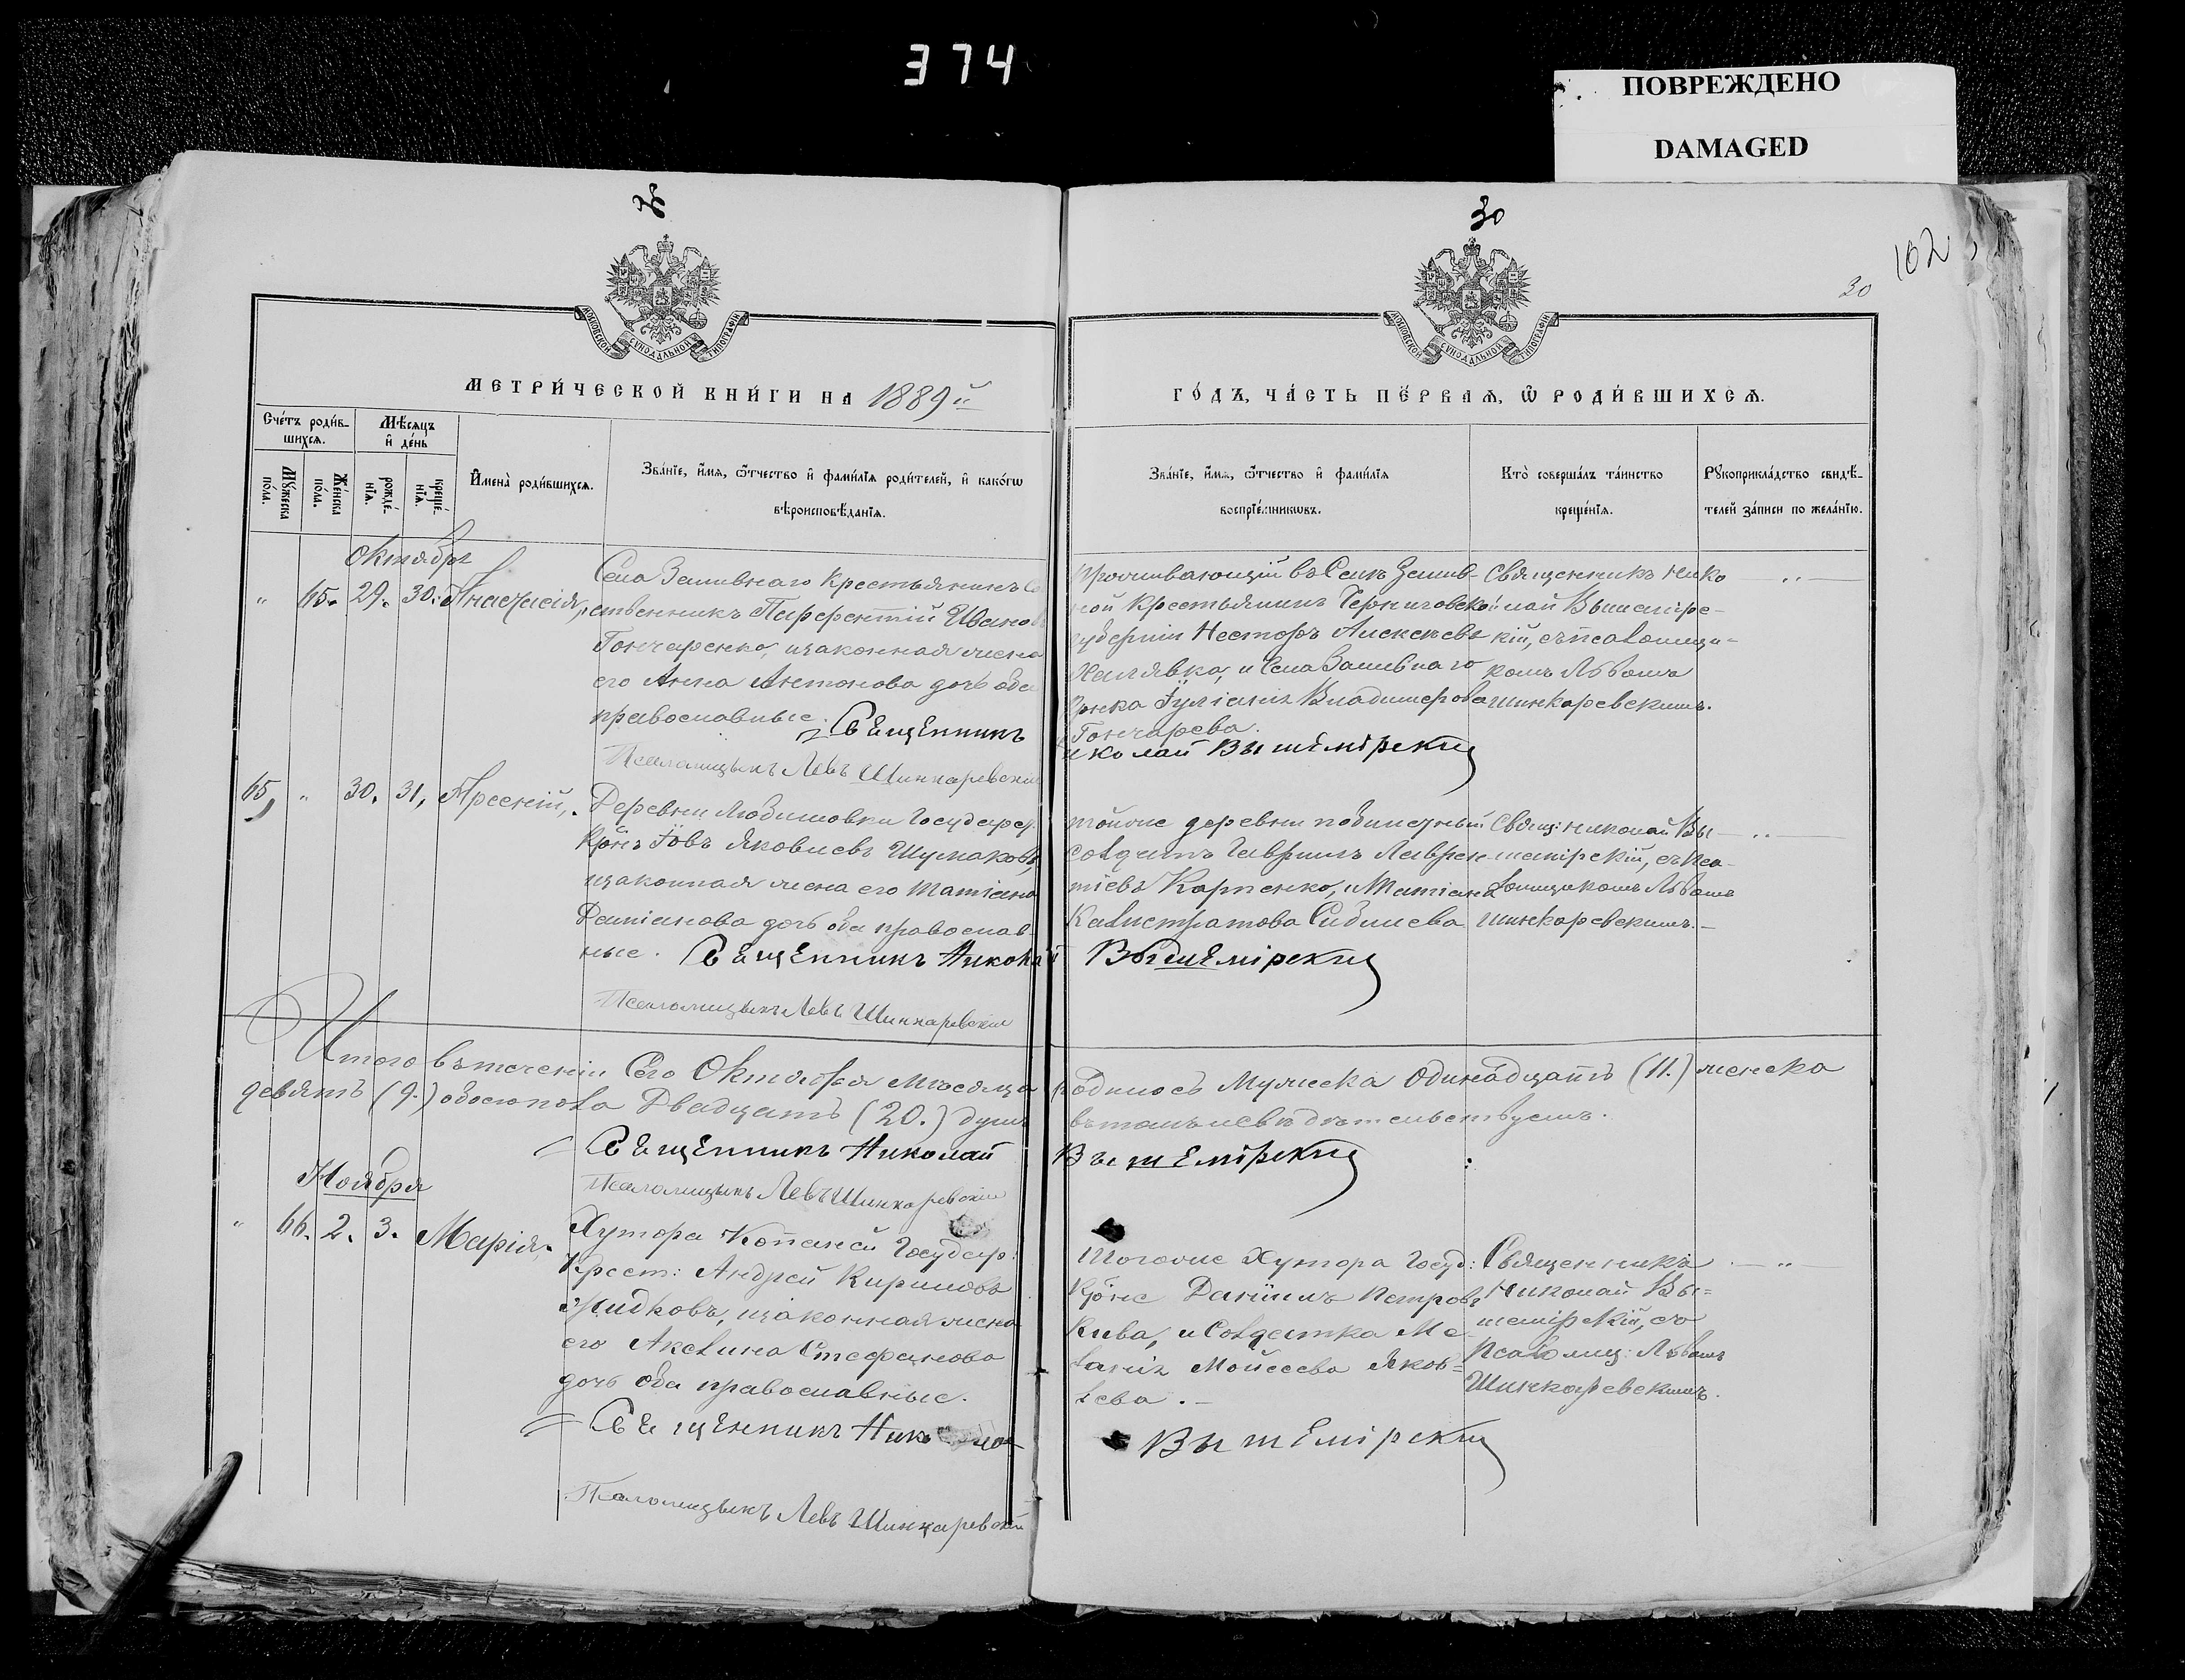 374
ПОВРЕЖДЕНО
DAMAGED
30
30
102
МОСКОВСКОЙ СѴНОДАЛЬНОЙ ТИПОГРАФІИ
МОСКОВСКОЙ СѴНОДАЛЬНОЙ ТИПОГРАФІИ
МЕТРИ́ЧЕСКОЙ КНИ́ГИ НА 1889й
ГО́ДЪ, ЧА́СТЬ ПЕ́РВАѦ, Ѿ РОДИ́ВШИХСѦ.
Сче́тъ роди́в-
шихсѧ.
Мѣ́сѧцъ
и҆ де́нь
Му́жеска
по́ла.
Же́нска
по́ла.
рожде́-
нїѧ.
креще́-
нїѧ.
И҆мена̀ роди́вшихсѧ.
Зва́нїе, и҆́мѧ, ѻ҆́тчество и҆ фами́лїѧ роди́телей, и҆ како́гѡ
вѣроисповѣ́данїѧ.
Зва́нїе, и҆́мѧ, ѻ҆́тчество и҆ фами́лїѧ
воспрїе́мникѡвъ.
Кто̀ соверша́лъ та́инство
креще́нїѧ.
Рꙋкоприкла́дство свидѣ́-
телей за́писи по жела́нїю.
Октября
" 65. 29. 30. Анастасія,
Села Заливнаго Крестьянинъ Со
ственникъ Парфентій Иванов
Гончаренко, и законная жена
его Анна Антонова дочь оба
православные. Священникъ
Псаломщикъ Левъ Шинкаревскій
Проживающій въ Селѣ Залив-
ной Крестьянинъ Черниговской
губерніи Несторъ Алексѣевъ
Халявка, и Села Заливнаго
Іуліанія Владимерова
Гончарева.
иколай Вышемірскій
Священникъ Нико
лай Вышемірс-
кій, съ псаломщи-
комъ Львомъ
Шинкаревскимъ.
65, " 30. 31, Арсеній,
Деревни Любимовки Государ.
Крнъ Іовъ Яковлевъ Шумаковъ,
и законная жена его Татіана
Даміанова дочь оба православ-
ные. Священникъ Николай
Псаломщикъ Левъ Шинкаревскій
тойже деревни
Солдатъ Гавріилъ Лаврен
тіевъ Карпенко, и Татіана
Калистратова Сибилева
Вышемірскій
Свящ: Николай Вы-
шемірскій, съ пса-
ломщикомъ Львомъ
Шинкаревскимъ.
Итого въ теченіи Сего Октября мѣсяца родилось Мужеска Одинадцать (11.) женска
девять (9.) обоего пола Двадцать (20.) душъ въ томъ и свидѣтельствуемъ.
Священникъ Николай Вышемірскій
Псаломщикъ Левъ Шинкаревскій
Ноября
" 66. 2. 3. Марія.
Хутора Копаней Государ:
Крест: Андрей Кириловъ
Жидковъ, и законная жена
его Акелина Стефанова
дочь оба православные.
Священникъ
Псаломщикъ Левъ Шинкаревскій
Тогоже Хутора Госуд:
Крнъ Даніилъ Петровъ
Кива, и Солдатка Ме
ланія Мойсеева Яков=
лева.
Вышемірскій
Священникъ
Николай Вы=
шемірскій, съ
Псаломщ: Львомъ
Шинкаревскимъ.